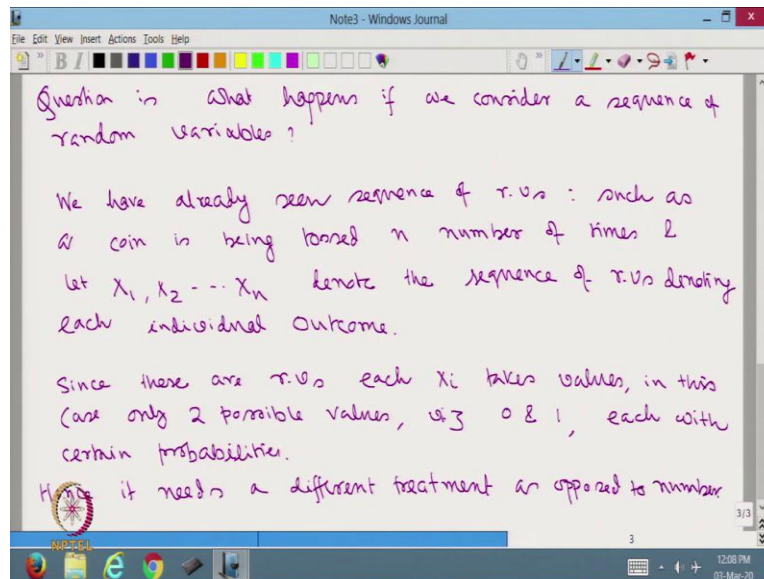 Note3 - Windows Journal
File Edit View Insert Actions Tools Help
Question is what happens if we consider a sequence of
random variables ?
We have already seen sequence of r.vs : such as
a coin is being tossed n number of times &
let X1, X2 --- Xn denote the sequence of r.vs denoting
each individual outcome.
Since these are r.vs each Xi takes values, in this
case only 2 possible values, viz 0 & 1, each with
certain probabilities.
Hence it needs a different treatment as opposed to number
3/3
NPTEL
3
12:08 PM
03-Mar-20